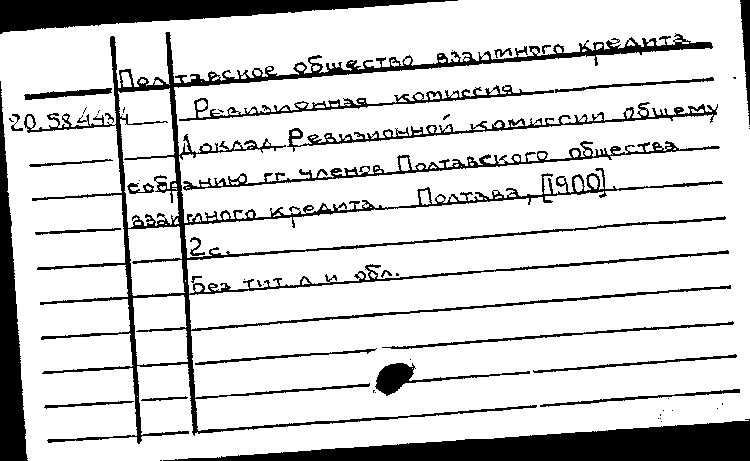 Полтавское общество взаимного кредита
20.58.4434 Ревизионная комиссия.
Доклад Ревизионной комиссии общему
собранию гг. членов Полтавского общества
взаимного кредита. Полтава, [1900].
2 с.
Без тит. л и обл.